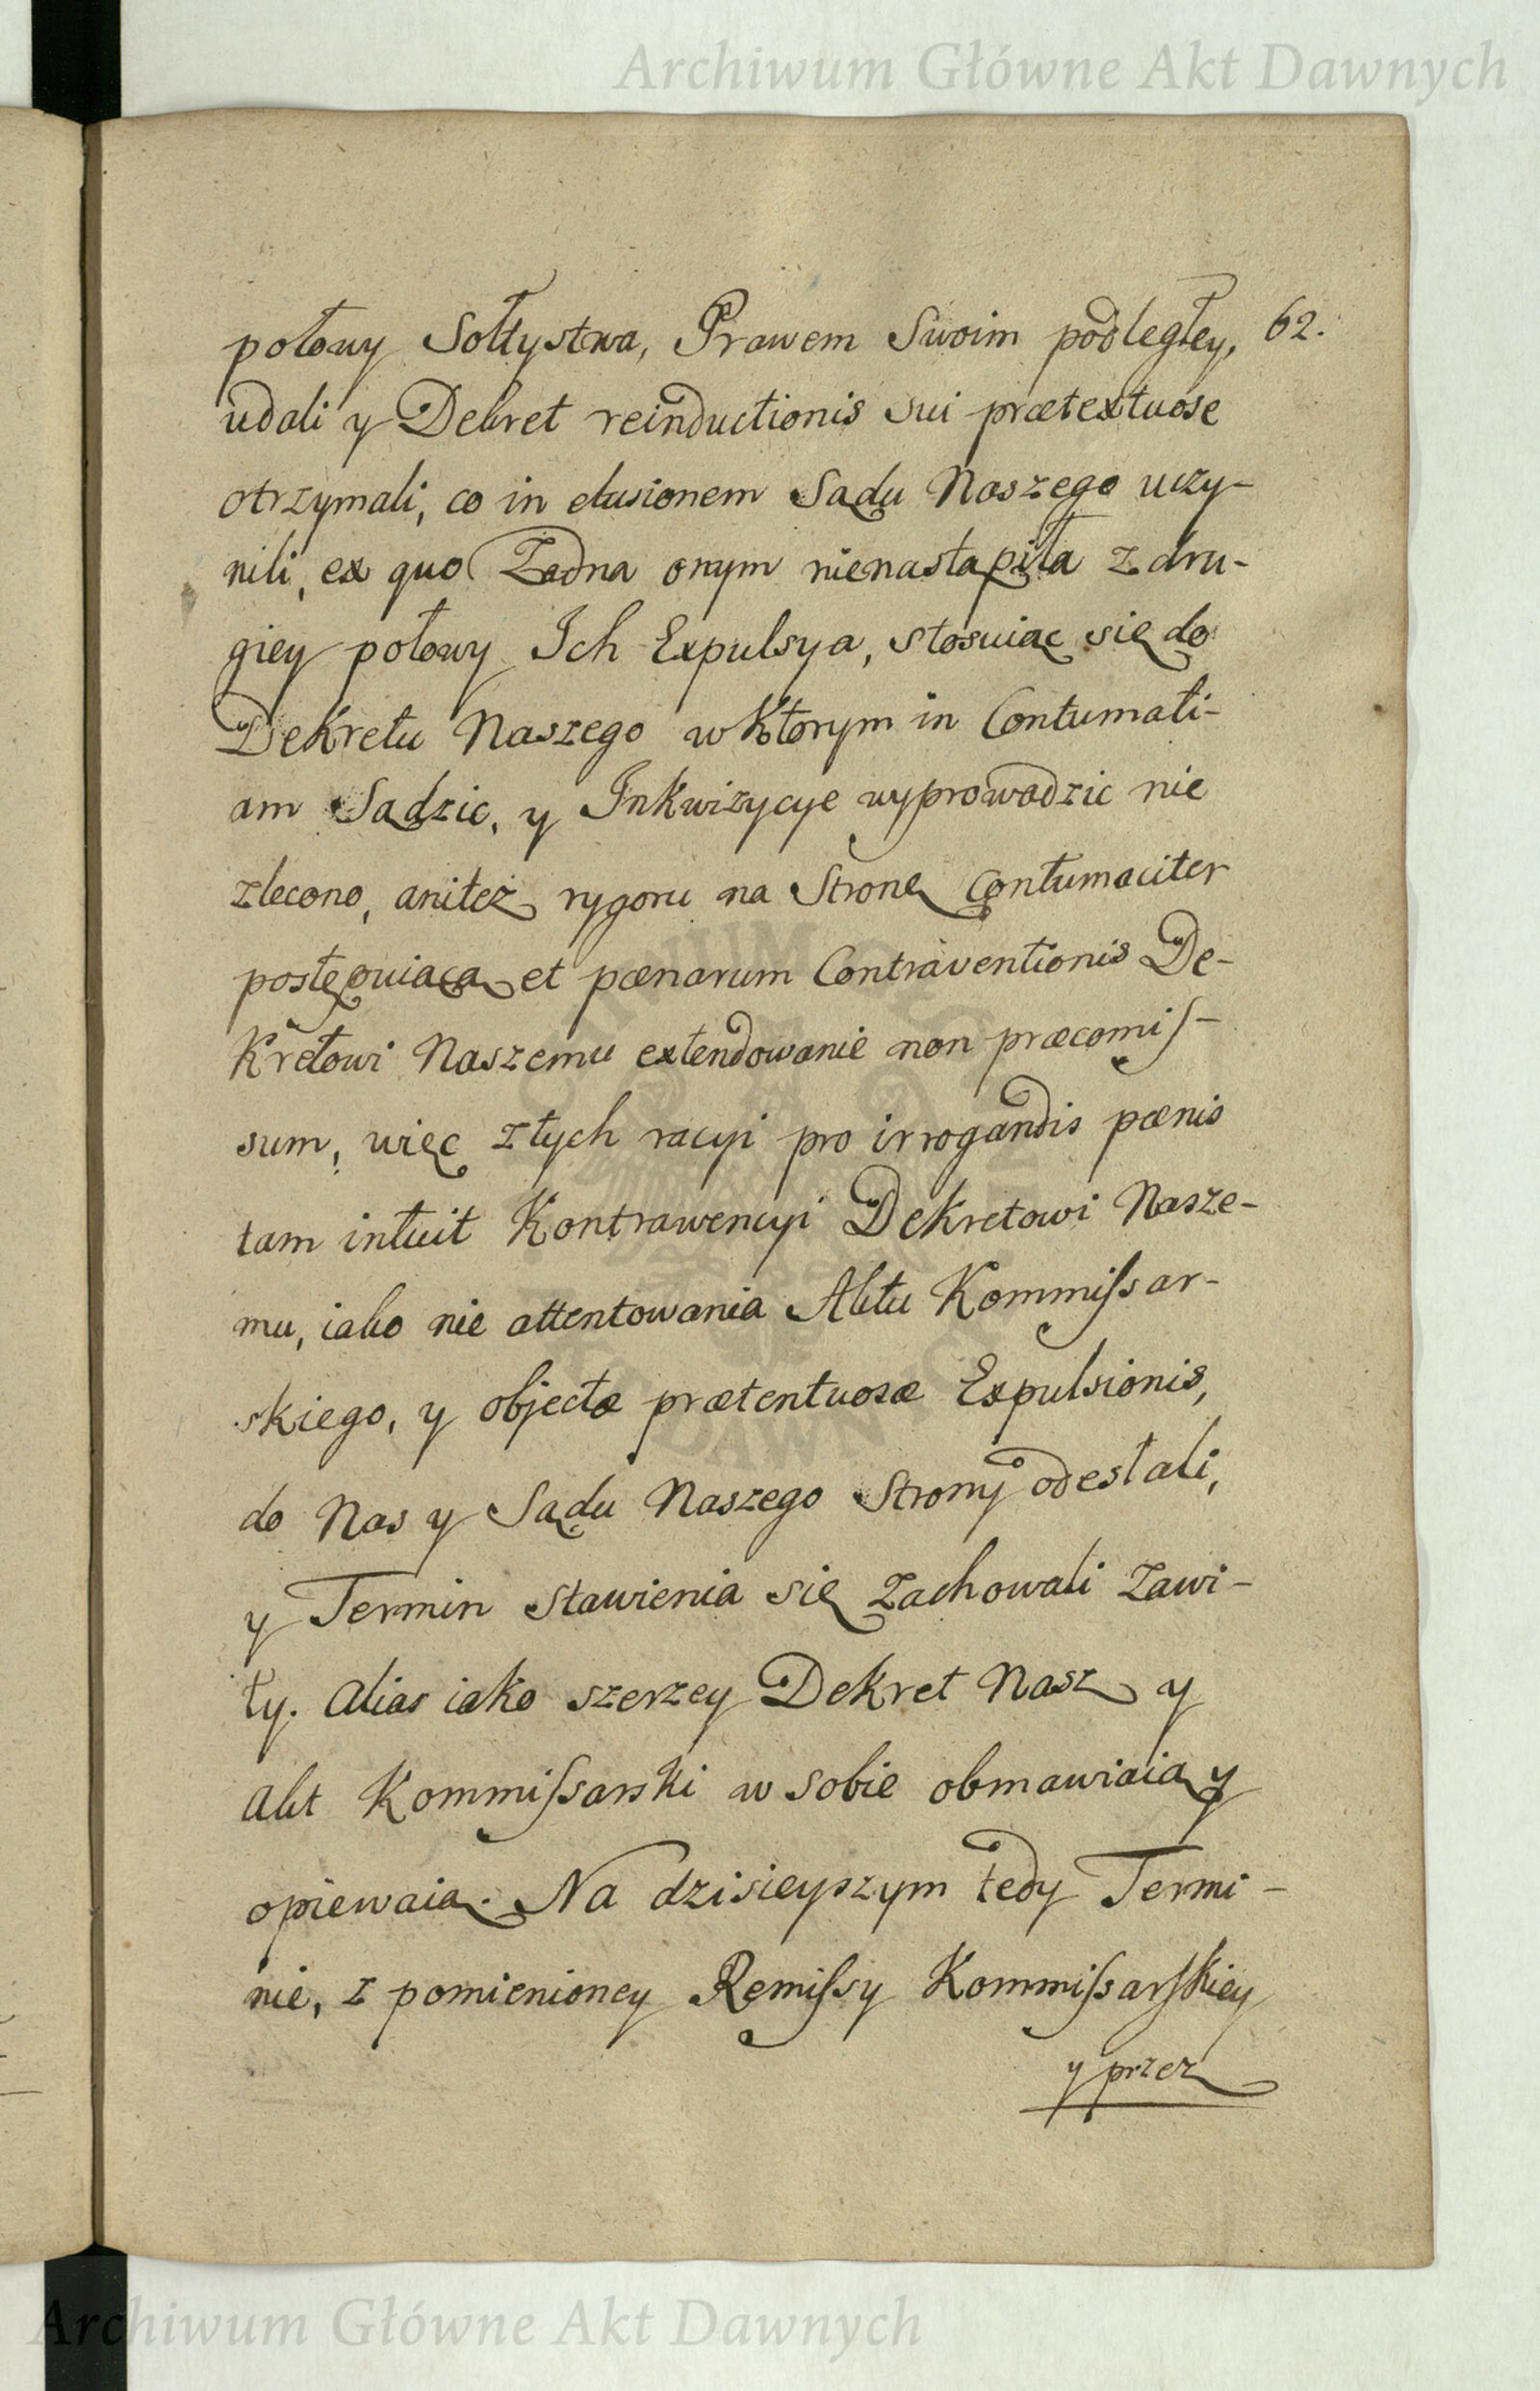 Archiwum Główne Akt Dawnych
połowy Sołtystwa, Prawem Swoim podległey, 62.
udali y Dekret reinductionis sui prætextuose
otrzymali, co in elusionem Sądu Naszego uczy-
nili, ex quo Żadna onym nienastąpiła z dru-
giey połowy Ich Expulsya, stosuiąc się do
Dekretu Naszego w Ktorym in Contumati-
am Sądzic, y Inkwizycye wyprowadzic nie
zlecono, aniteż rygoru na Stronę Contumaciter
postępuiącą et pœnarum Contraventionis De-
kretowi Naszemu extendowanie non præcomis-
sum, więc z tych racyi pro irrogandis pœnis
tam intuit Kontrawencyi Dekretowi Nasze-
mu, iako nie attentowania Aktu Kommissar-
skiego, y objectæ prætentuosæ Expulsionis,
do Nas y Sądu Naszego Strony odesłali,
y Termin stawienia się zachowali zawi-
ty. Alias iako szerzey Dekret Nasz y
Akt Kommissarski w sobie obmawiaią y
opiewaią. Na dzisieyszym tedy Termi-
nie, z pomienioney Remissy Kommissarskiey
y przez
Archiwum Główne Akt Dawnych